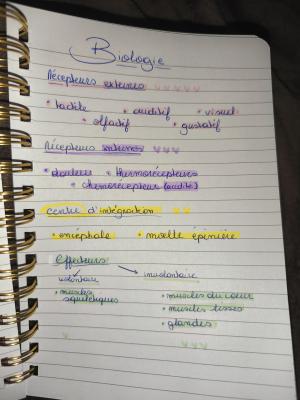 Biologie
Récepteurs externes
• tactile • auditif • visuel
• olfactif • gustatif
Récepteurs internes
• douleur • thermorécepteurs
• chemorécepteur (acidité)
centre d'intégration
• encéphale • moelle épinière
effecteurs
volontaire involontaire
• muscles squelettiques
• muscles du coeur
• muscles lisses
• glandes